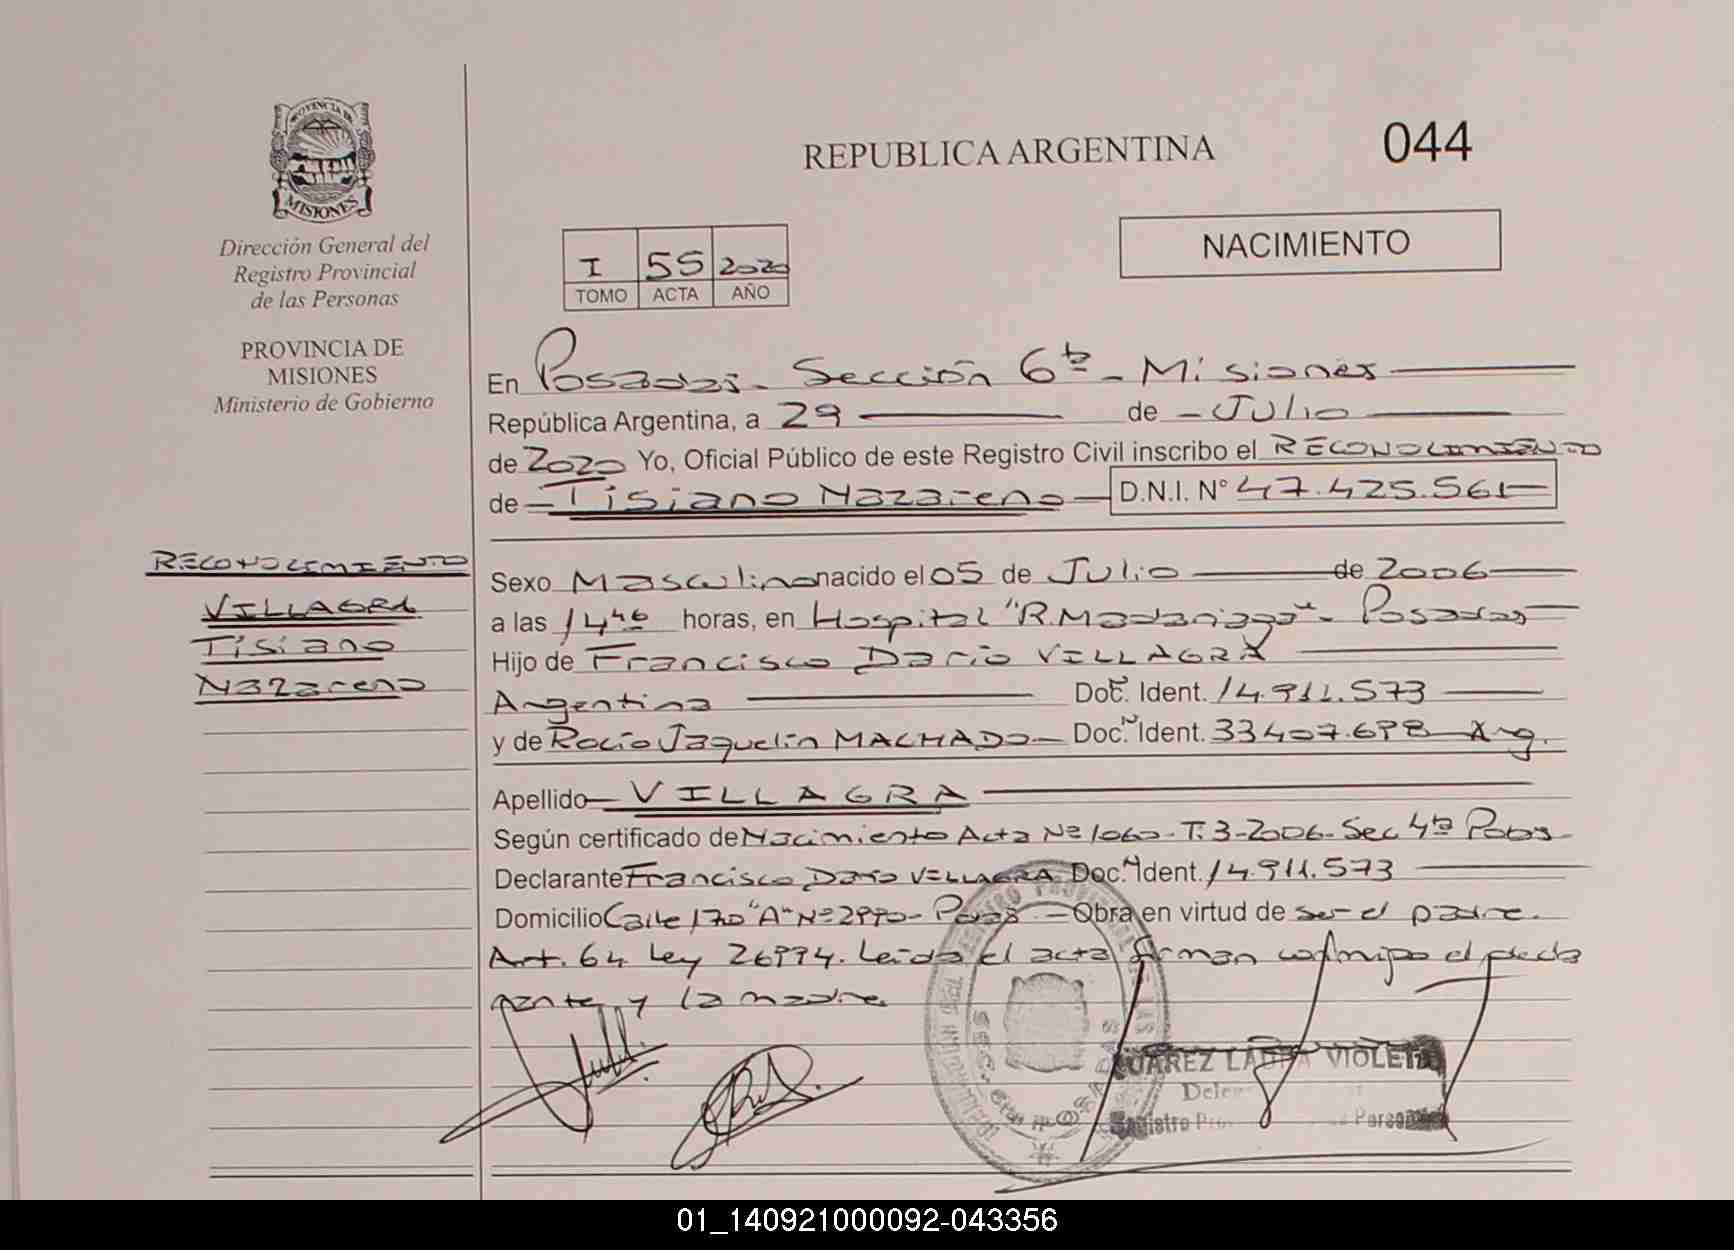 PROVINCIA DE
MISIONES
Dirección General del
Registro Provincial
de las Personas
PROVINCIA DE
MISIONES
Ministerio de Gobierno
REPUBLICA ARGENTINA
044
I 55 2020
TOMO ACTA AÑO
NACIMIENTO
En Posadas - Sección 6ta - Misiones
República Argentina, a 29 de - Julio
de 2020 Yo, Oficial Público de este Registro Civil inscribo el RECONOCIMIENTO
de - Tisiano Nazareno - D.N.I. N° 47.425.561
RECONOCIMIENTO
VILLAGRA
Tisiano
Nazareno
Sexo Masculino nacido el 05 de Julio de 2006
a las 14 40 horas, en Hospital "R. Madariaga" - Posadas
Hijo de Francisco Dario VILLAGRA
Argentina Doc. Ident. 14.911.573
y de Rocío Jaquelin MACHADO - Doc. Ident. 33407.698 Arg.
Apellido VILLAGRA
Según certificado de Nacimiento Acta Nº 1060 - T. 3 - 2006 - Sec 4ta Pdas
Declarante Francisco Dario VILLAGRA Doc. Ident. 14.911.573
Domicilio Calle 170 "A" Nº 2990 - Pdas - Obra en virtud de ser el padre.
Art. 64 Ley 26994. Leída el acta firman conmigo el decla
rante y la madre.
SUAREZ LAURA VIOLETA
Registro Personas
01_140921000092-043356